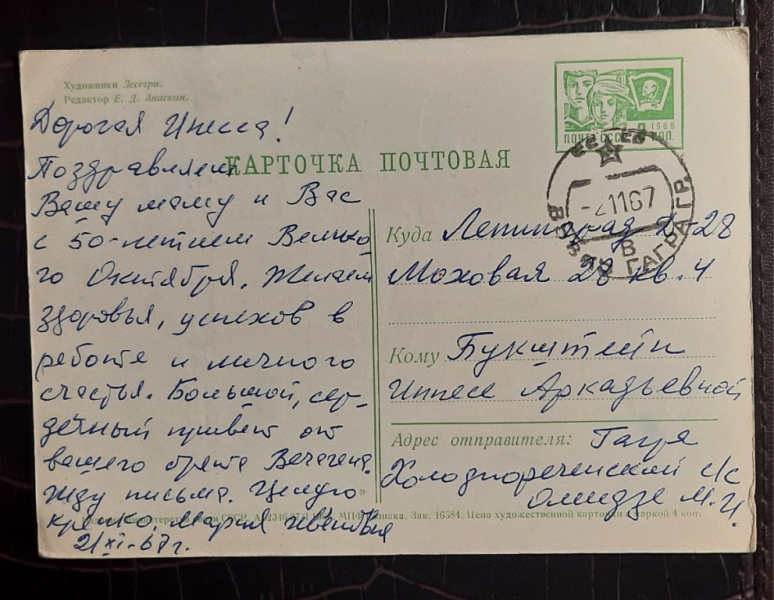 Художники Лесегри.
Редактор Е. Д. Анискин.
ПОЧТА СССР
1966
КОП.
КАРТОЧКА ПОЧТОВАЯ
Дорогая Инесса!
Поздравляем
Вашу маму и Вас
с 50-летием Велико-
го Октября. Желаем
здоровья, успехов в
работе и личного
счастья. Большой, сер-
дечный привет от
вашего брата
Жду письма. Целую
крепко
2/XI-67г.
-21167
В
ГАГРА ГР.
Куда Ленинград Д-28
Моховая 28 кв. 4
Кому Букштейн
Инессе Аркадьевной
Адрес отправителя: Гагра
Холоднореченский с/с
М. И.
МПФ Гознака. Зак. 16584. Цена художественной карточки с маркой 4 коп.